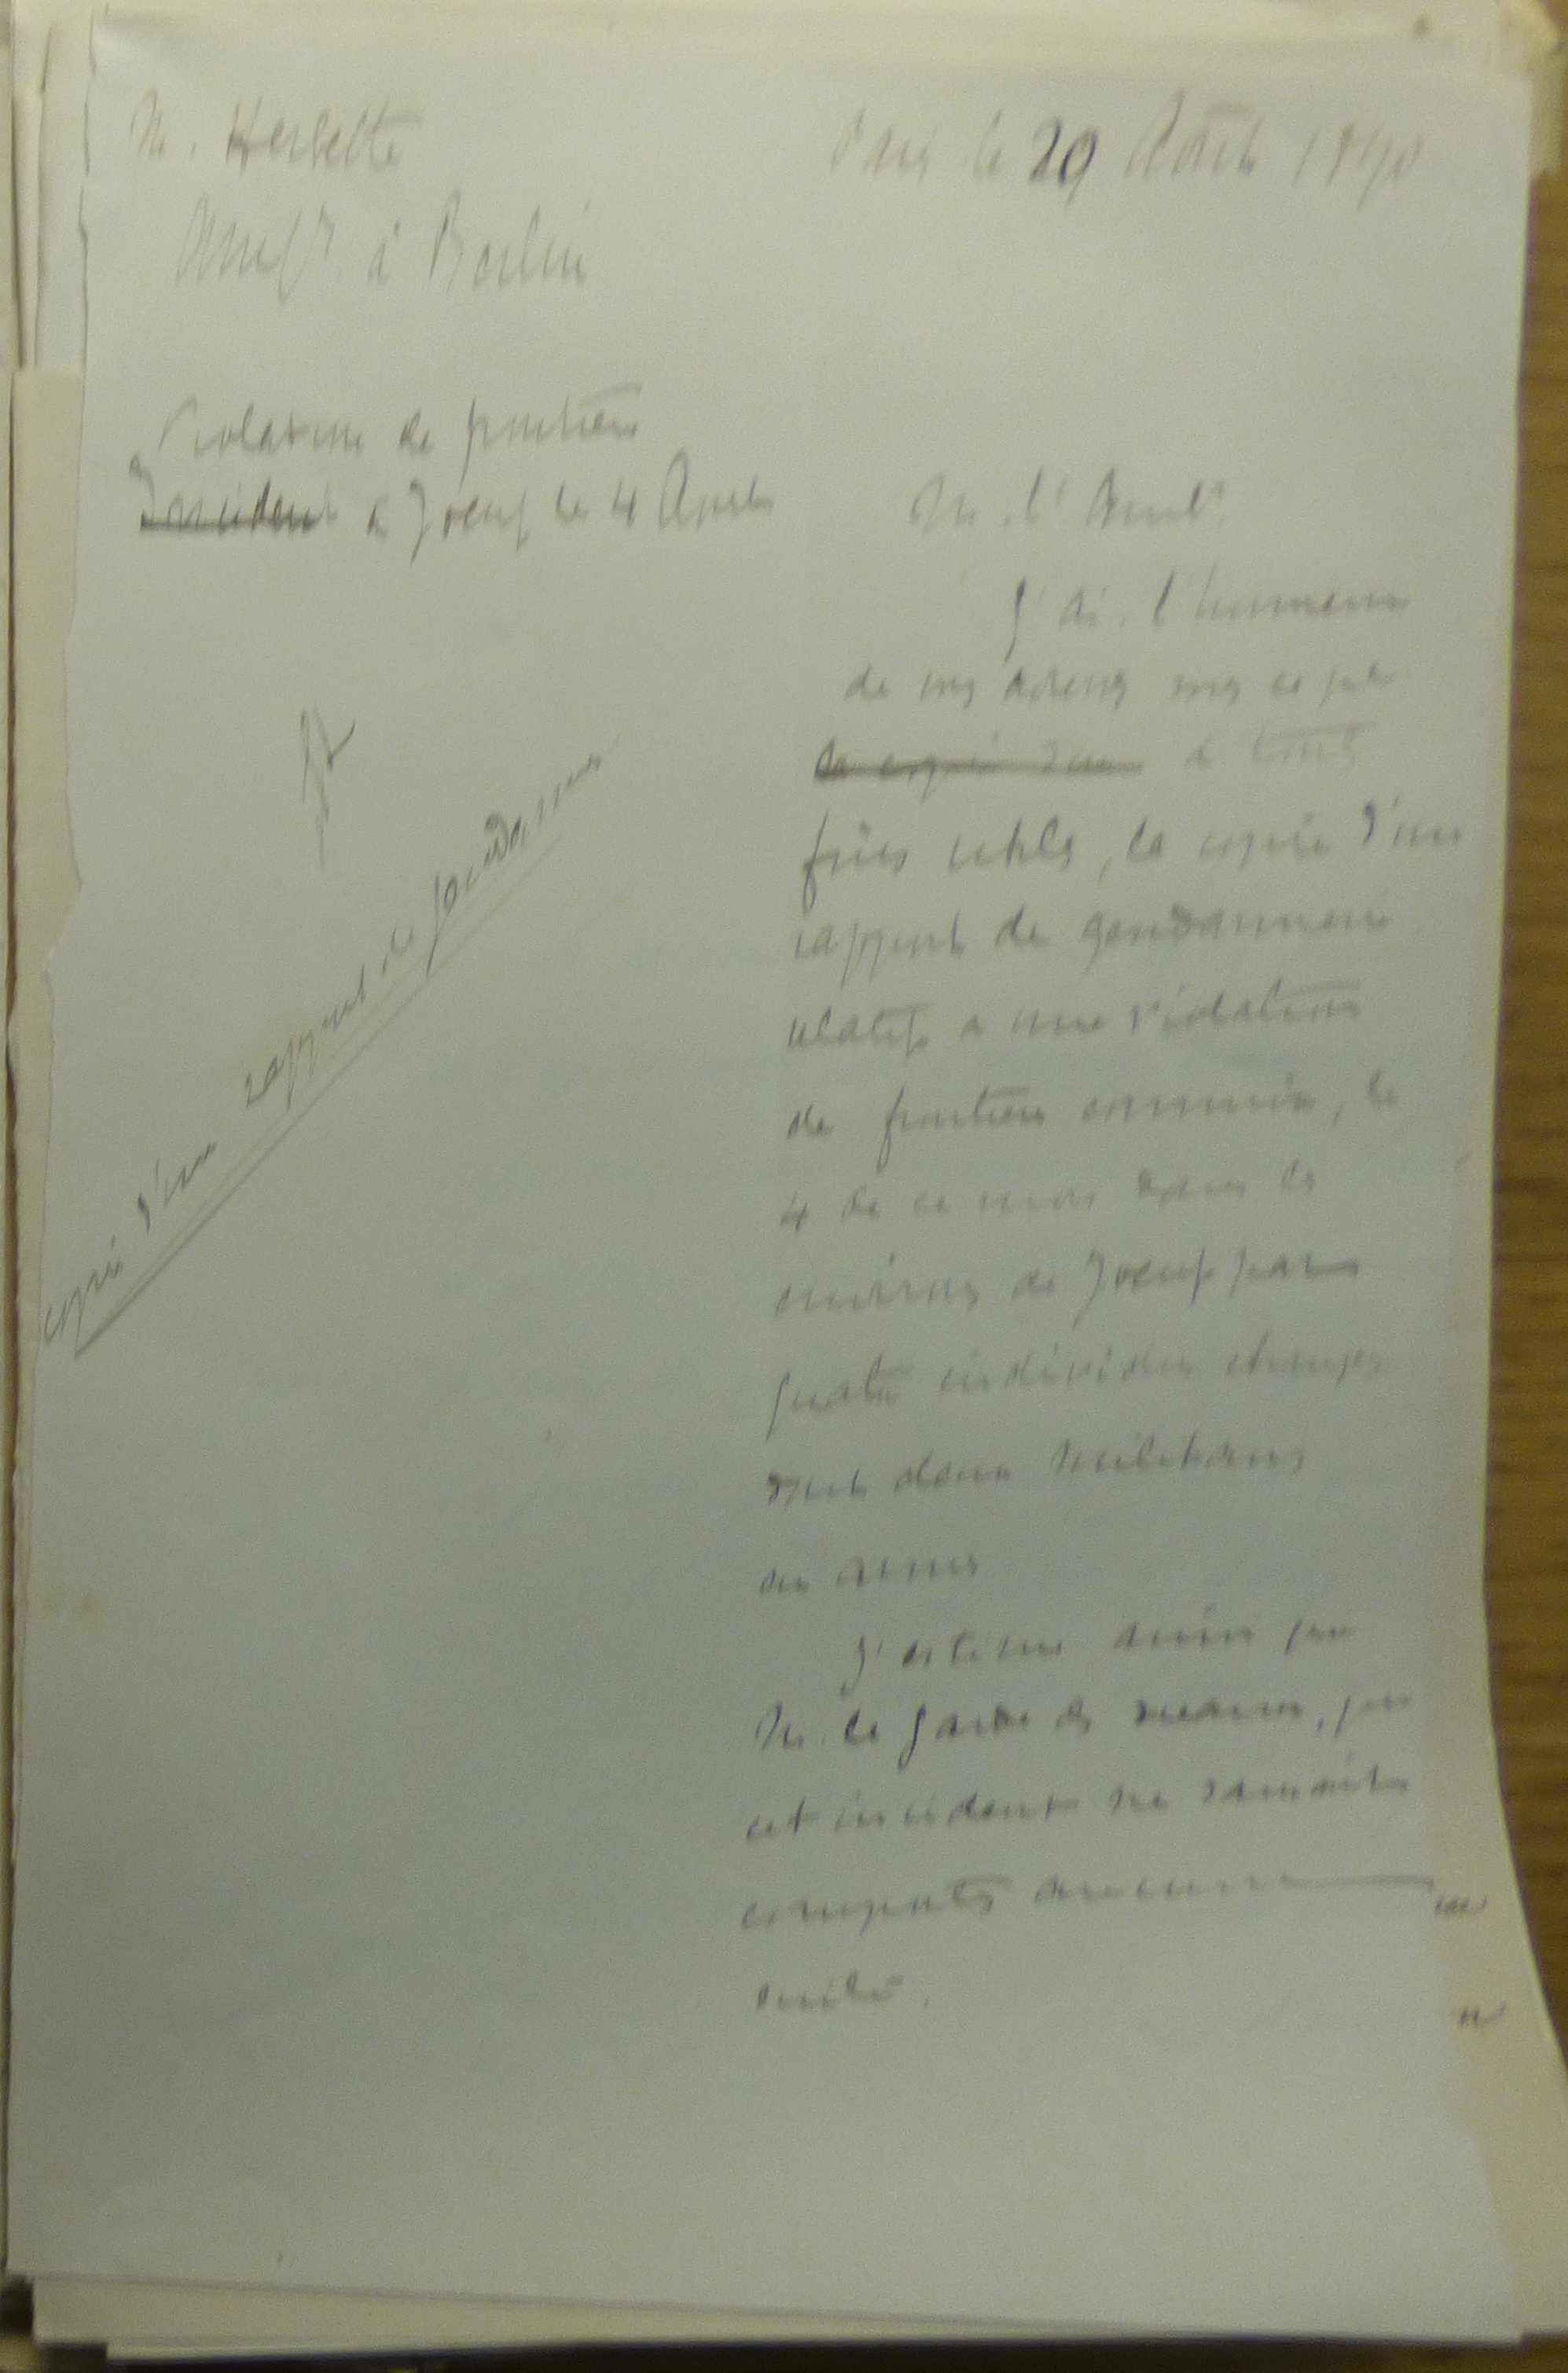 M. Herbette
Paris le 29 Août 1890
Amb^r. à Berlin
Violation de frontière
Incident à Joeuf le 4 Août
M. l'Amb^r.
J'ai l'honneur
de vous adresser sous ce pli
la copie d'un à toutes
fins utiles, la copie d'un
rapport de gendarmerie
relatif à une violation
de frontière commise, le
4 de ce mois dans les
environs de Joeuf par
quatre individus étrangers
dont deux militaires
en armes
J'estime ainsi que
M. le Garde des Sceaux, que
cet incident ne saurait
comporter aucune
suite.
copie d'un rapport de gendarmerie